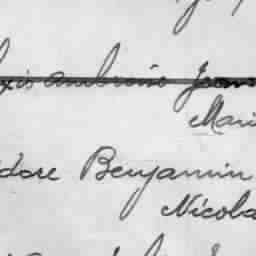 xis Ambroise Jean
Mari
dore Benjamin
Nicola